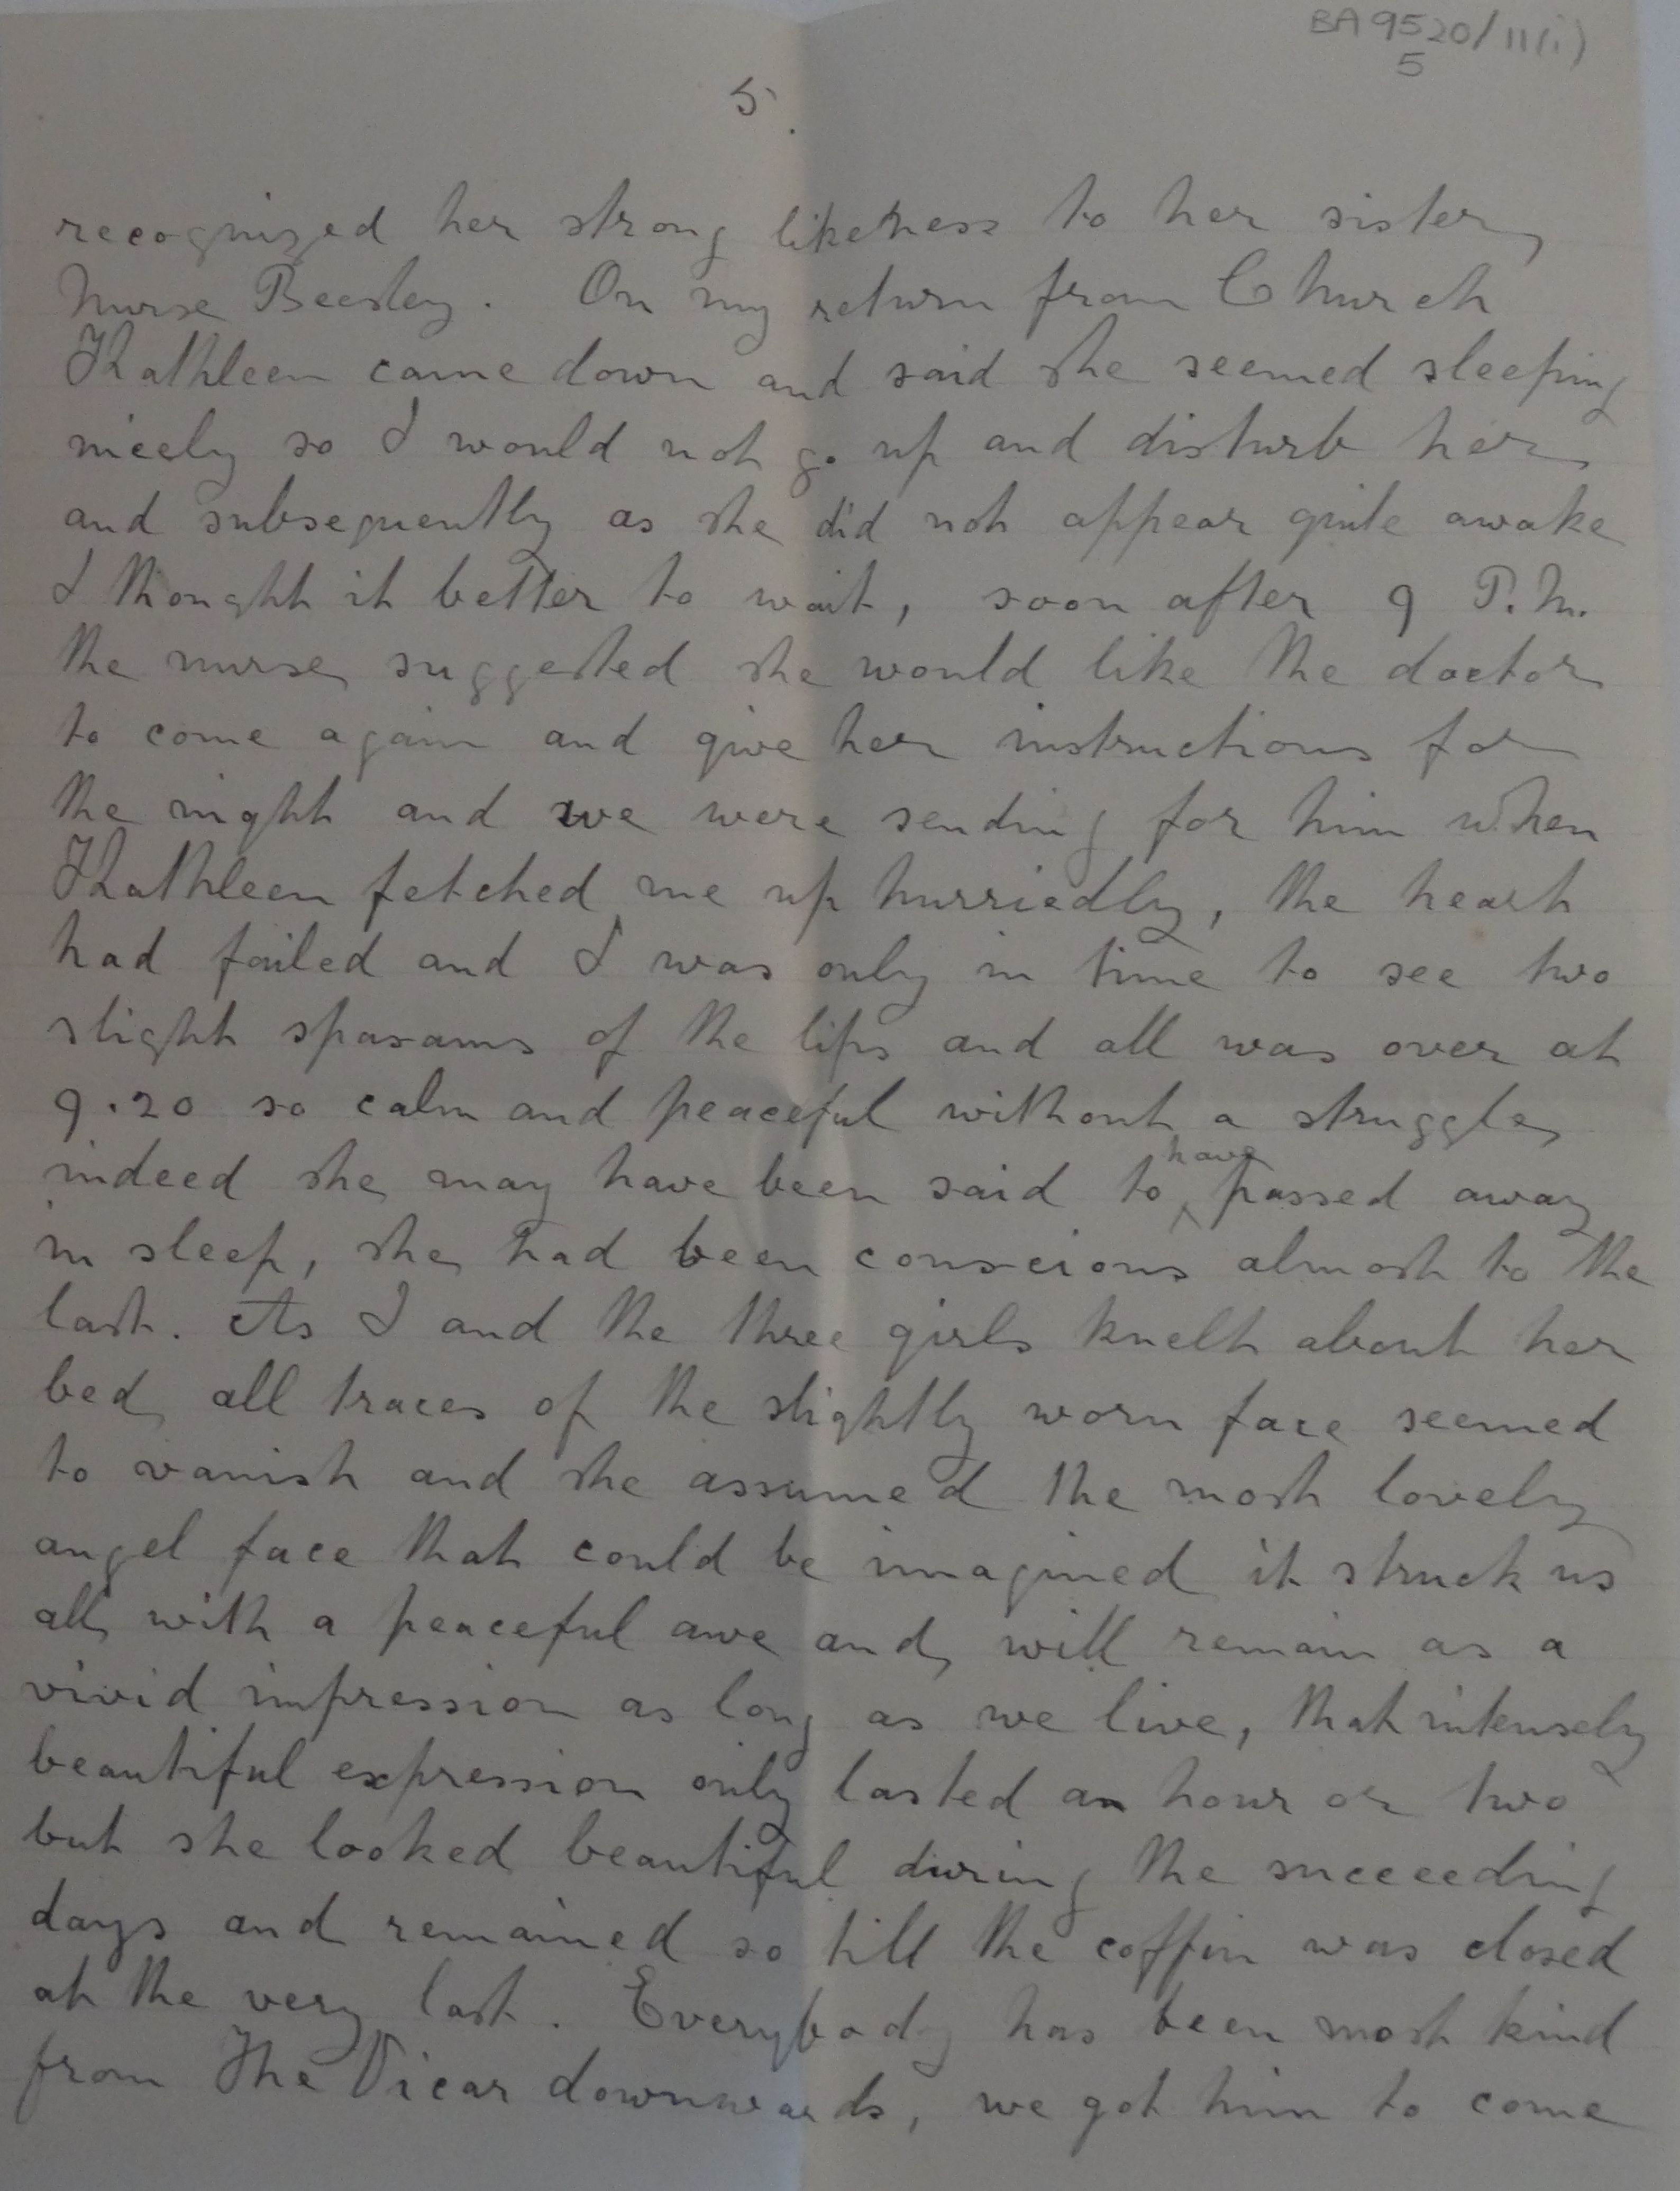 BA 9520/11(i)
5
5.
recognized her strong likeness to her sister,
Nurse Beesley. On my return from Church
Kathleen came down and said she seemed sleeping
nicely so I would not go up and disturb her
and subsequently as she did not appear quite awake
I thought it better to wait, soon after 9 P.M.
the nurse suggested she would like the doctor
to come again and give her instructions for
the night and we were sending for him when
Kathleen fetched me up hurriedly, the heart
had failed and I was only in time to see two
slight spasams of the lips and all was over at
9.20 so calm and peaceful without a struggle,
indeed she may have been said to have passed away
in sleep, she had been conscious almost to the
last. As I and the three girls knelt about her
bed, all traces of the slightly worn face seemed
to vanish and she assumed the most lovely
angel face that could be imagined it struck us
all, with a peaceful awe and, will remain as a
vivid impression as long as we live, that intensely
beautiful expression only lasted an hour or two
but she looked beautiful during the succeeding
days and remained so till the coffin was closed
at the very last. Everybody has been most kind
from The Vicar downwards, we got him to come